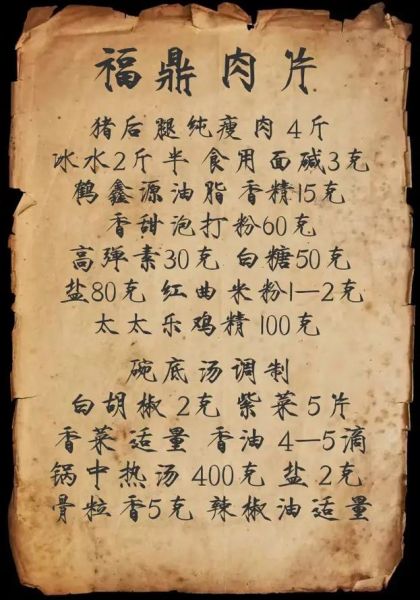 福鼎肉片
猪后腿纯瘦肉 4斤
冰水2斤半 食用面碱3克
鹤鑫源油脂香精15克
香甜泡打粉60克
高弹素30克 白糖50克
盐80克 红曲米粉1—2克
太太乐鸡精 100克
碗底汤调制
白胡椒 2克 紫菜5片
香菜适量 香油 4—5滴
锅中热汤 400克 盐2克
骨粒香5克 辣椒油适量